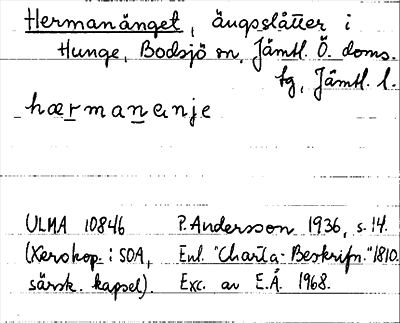 Hermanänget, ängsslåtter i
Hunge, Bodsjö sn, Jämtl. Ö. doms.
tg, Jämtl. l.
hærmanenje
ULMA 10846 P. Andersson 1936, s. 14.
(Xerokop. i SOA, Enl. "Charta-Beskrifn." 1810.
särsk. kapsel). Exc. av E.Å. 1968.